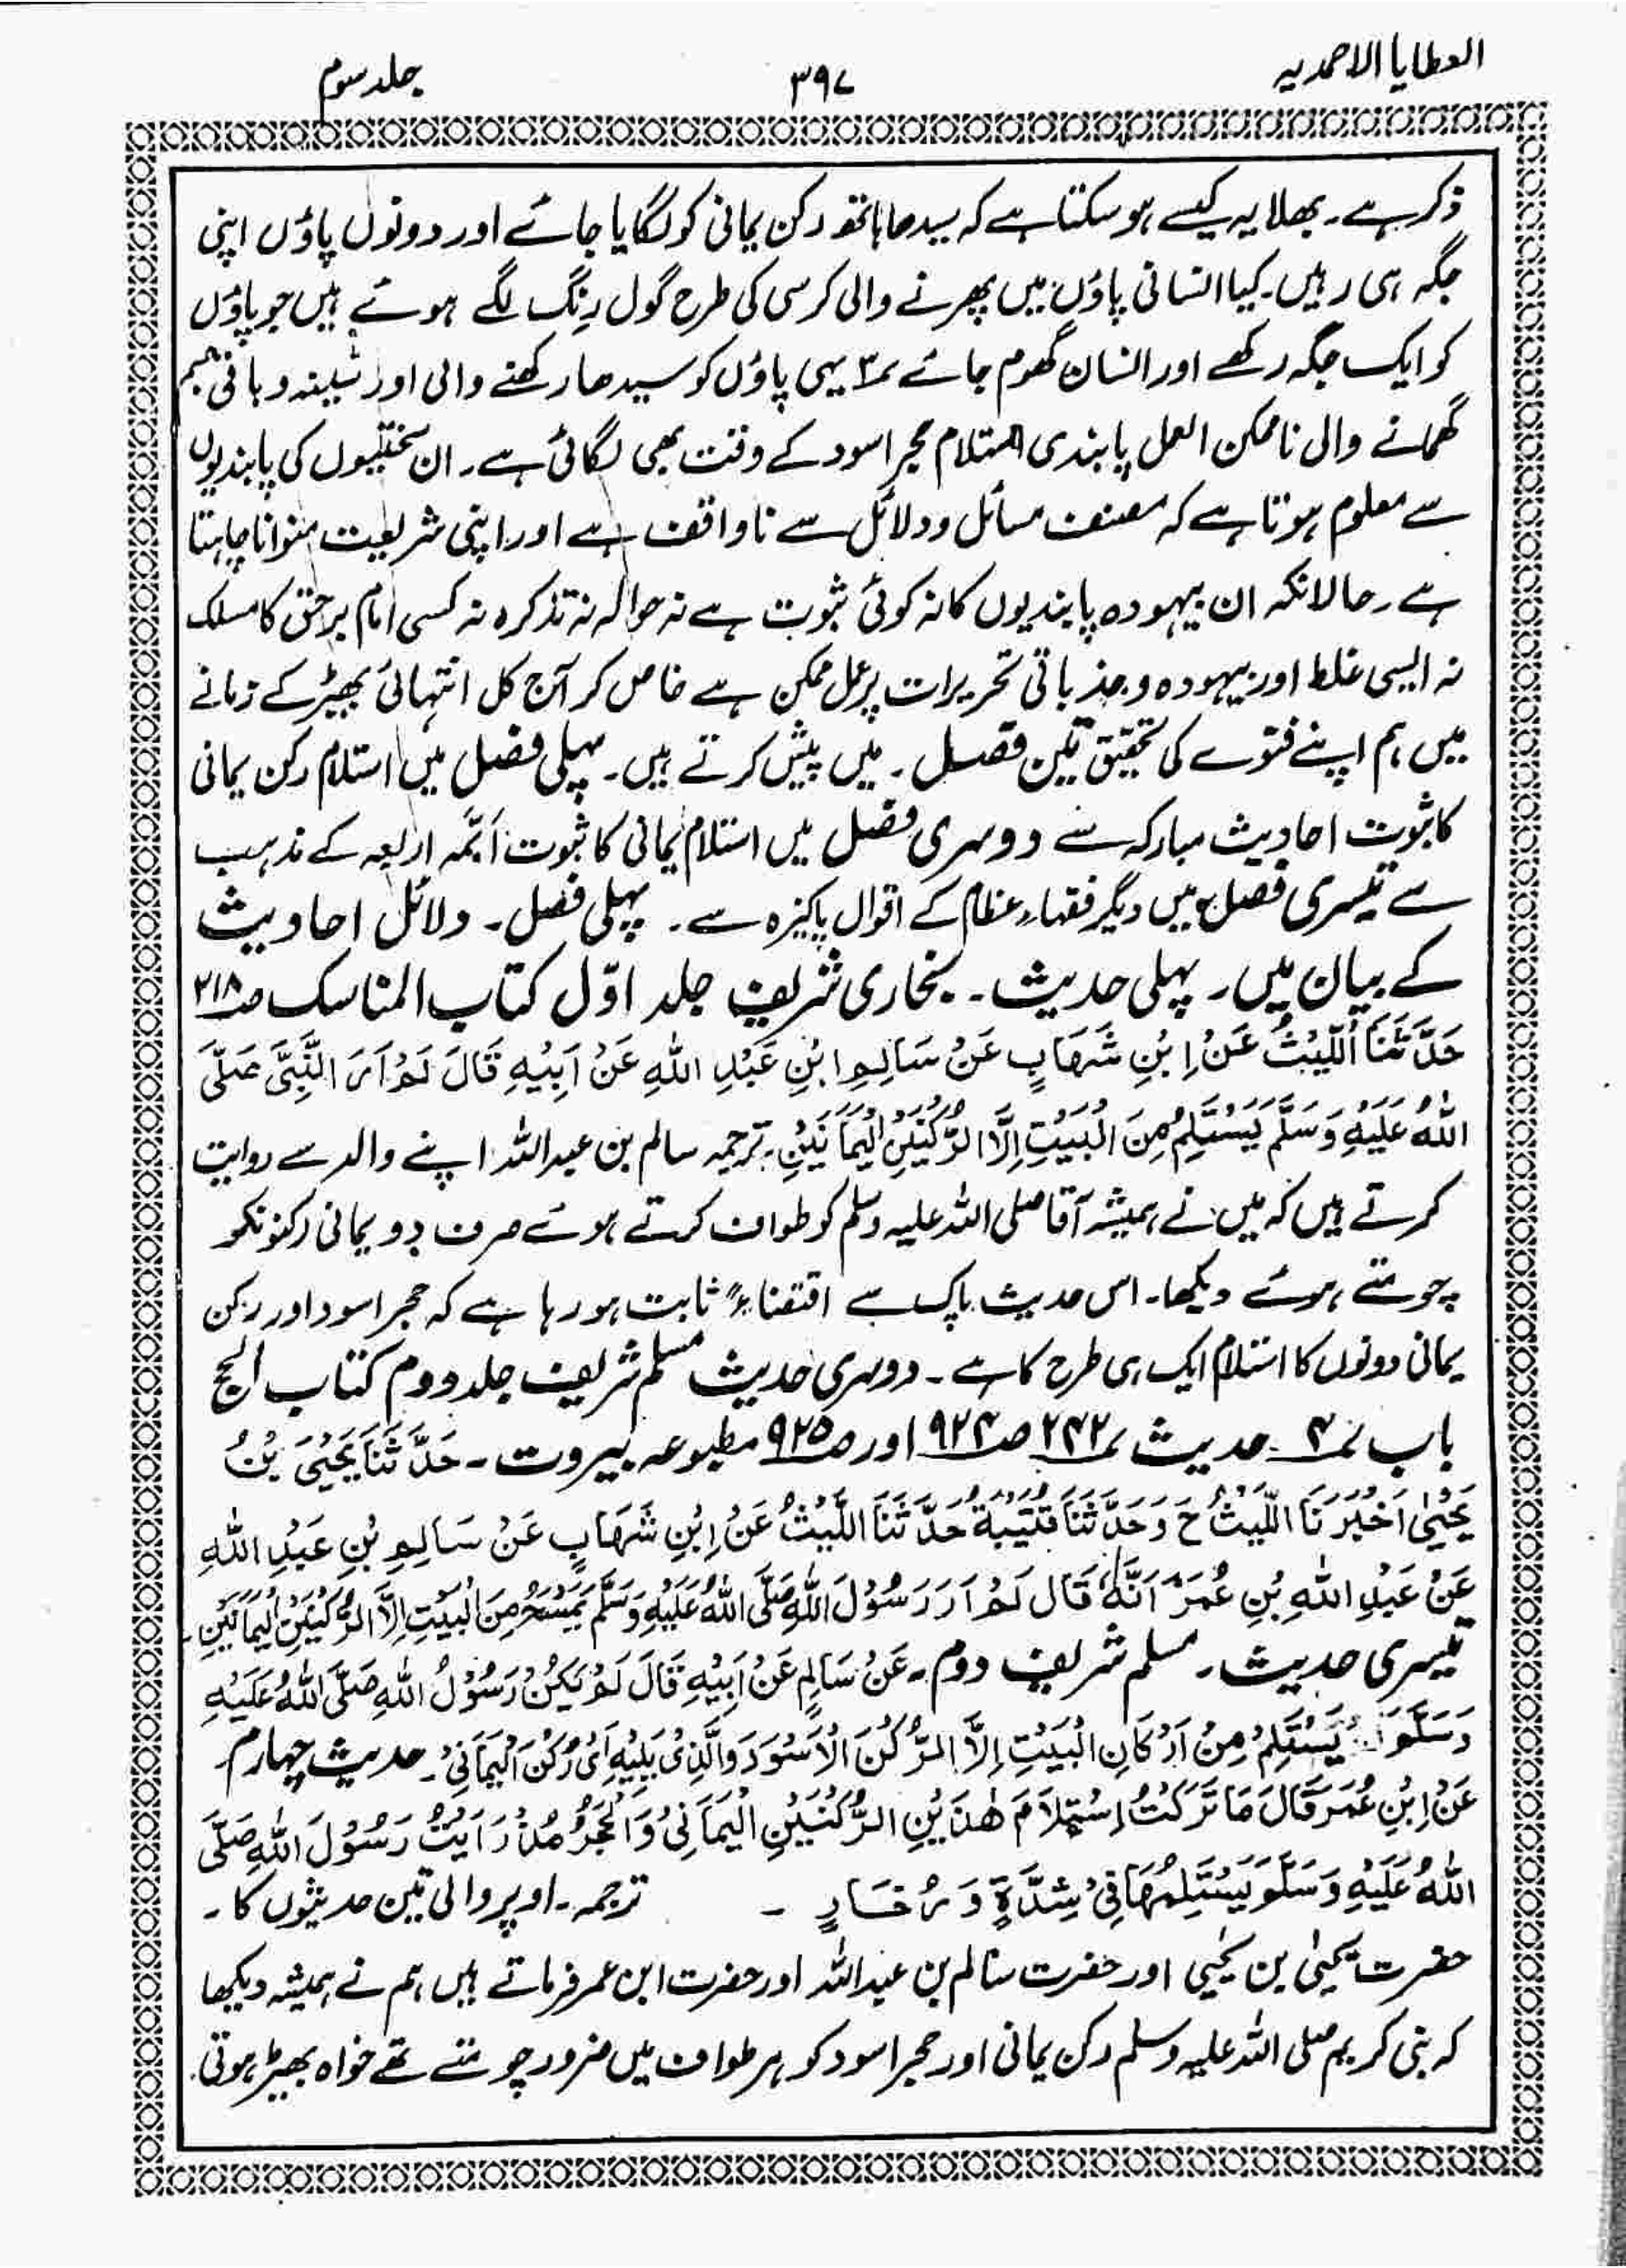 العطایا الاحمدیہ ۳۹۷ جلد سوم
ذکر ہے۔ بھلا یہ کیسے ہو سکتا ہے کہ سیدھا ہاتھ رکن یمانی کو لگایا جائے اور دونوں پاؤں اپنی
جگہ ہی رہیں۔ کیا انسانی پاؤں میں پھرنے والی کرسی کی طرح گول رِنگ لگے ہوئے ہیں جو پاؤں
کو ایک جگہ رکھے اور انسان گھوم جائے ۳؎ یہی پاؤں کو سیدھا رکھنے والی اور سینہ و باقی جسم
گھمانے والی ناممکن العمل پابندی استلام حجر اسود کے وقت بھی لگائی ہے۔ ان سختیوں کی پابندیوں
سے معلوم ہوتا ہے کہ مصنف مسائل و دلائل سے ناواقف ہے اور اپنی شریعت منوانا چاہتا
ہے۔ حالانکہ ان بیہودہ پابندیوں کا نہ کوئی ثبوت ہے نہ حوالہ نہ تذکرہ نہ کسی امام برحق کا مسلک
نہ ایسی غلط اور بیہودہ و جذباتی تحریرات پر عمل ممکن ہے خاص کر آج کل انتہائی بھیڑ کے زمانے
میں ہم اپنے فتوے کی تحقیق تین فصل۔ میں پیش کرتے ہیں۔ پہلی فصل میں استلام رکن یمانی
کا ثبوت احادیث مبارکہ سے دوسری فصل میں استلام یمانی کا ثبوت آئمہ اربعہ کے مذہب
سے تیسری فصل میں دیگر فقہاء عظام کے اقوال پاکیزہ سے۔ پہلی فصل۔ دلائل احادیث
کے بیان میں۔ پہلی حدیث۔ بخاری شریف جلد اوّل کتاب المناسک صـ۲۱۸
حَدَّثَنَا اللَّيْثُ عَنْ اِبْنِ شَهَابٍ عَنْ سَالِمِ ابْنِ عَبْدِ اللهِ عَنْ اَبِيْهِ قَالَ لَمْ اَرَ النَّبِيَّ صَلَّى
اللهُ عَلَيْهِ وَسَلَّمَ يَسْتَلِمُ مِنَ الْبَيْتِ اِلَّا الرُّكْنَيْنِ الْيَمَانَيْنِ۔ ترجمہ سالم بن عبداللہ اپنے والد سے روایت
کرتے ہیں کہ میں نے ہمیشہ آقا صلی اللہ علیہ وسلم کو طواف کرتے ہوئے صرف دو یمانی رکنونکو
چومتے ہوئے دیکھا۔ اس حدیث پاک سے اقتضاءً ثابت ہو رہا ہے کہ حجر اسود اور رکن
یمانی دونوں کا استلام ایک ہی طرح کا ہے۔ دوسری حدیث مسلم شریف جلد دوم کتاب الحج
باب نمـ۴ حدیث نمـ۲۴۲ صـ۹۲۴ اور صـ۹۲۵ مطبوعہ بیروت۔ حَدَّثَنَا يَحْيَىٰ بْنُ
يَحْيٰى اَخْبَرَنَا اللَّيْثُ حَ وَحَدَّثَنَا قُتَيْبَةُ حَدَّثَنَا اللَّيْثُ عَنْ اِبْنِ شَهَابٍ عَنْ سَالِمِ بْنِ عَبْدِ اللهِ
عَنْ عَبْدِ اللهِ بْنِ عُمَرَ اَنَّهٗ قَالَ لَمْ اَرَ رَسُوْلَ اللهِ صَلَّى اللهُ عَلَيْهِ وَسَلَّمَ يَمْسَحُ مِنَ الْبَيْتِ اِلَّا الرُّكْنَيْنِ الْيَمَانَيْنِ۔
تیسری حدیث۔ مسلم شریف دوم۔ عَنْ سَالِمٍ عَنْ اَبِيْهِ قَالَ لَمْ يَكُنْ رَسُوْلُ اللهِ صَلَّى اللهُ عَلَيْهِ
وَسَلَّمَ يَسْتَلِمُ مِنْ اَرْكَانِ الْبَيْتِ اِلَّا الرُّكْنَ الْاَسْوَدَ وَالَّذِىْ يَلِيْهِ اَىْ رُكْنَ الْيَمَانِىْ۔ حدیث چہارم
عَنْ اِبْنِ عُمَرَ قَالَ مَا تَرَكْتُ اِسْتِلَامَ هٰذَيْنِ الرُّكْنَيْنِ الْيَمَانِىْ وَالْحَجَرُ مُذْ رَاَيْتُ رَسُوْلَ اللهِ صَلَّى
اللهُ عَلَيْهِ وَسَلَّمَ يَسْتَلِمُهَا فِىْ شِدَّةٍ وَرَخَاءٍ ۔ ترجمہ۔ اوپر والی تین حدیثوں کا۔
حضرت یحییٰ بن یحییٰ اور حضرت سالم بن عبداللہ اور حضرت ابن عمر فرماتے ہیں ہم نے ہمیشہ دیکھا
کہ نبی کریم صلی اللہ علیہ وسلم رکن یمانی اور حجر اسود کو ہر طواف میں ضرور چومتے تھے خواہ بھیڑ ہوتی